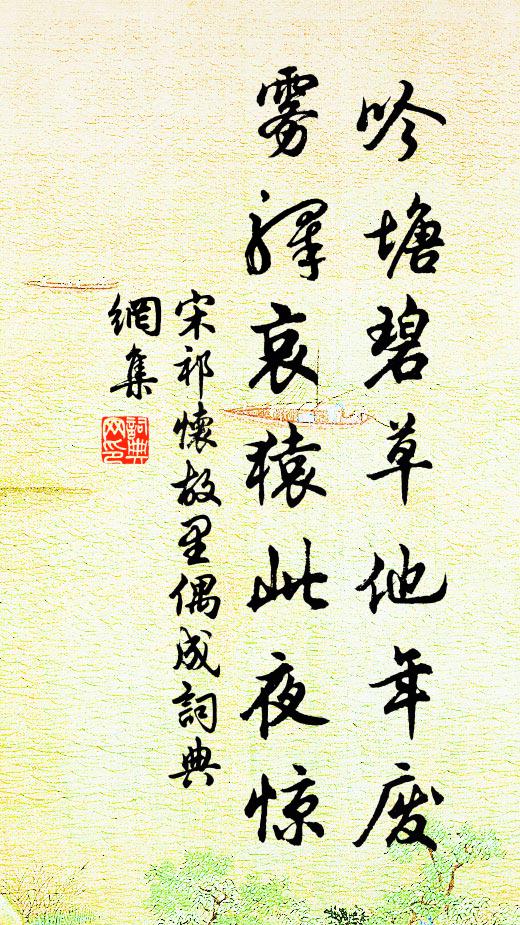 吟塘碧草他年废
雾驛哀猿此夜惊
宋祁懷故里偶成詞典
網集
詞典
网印